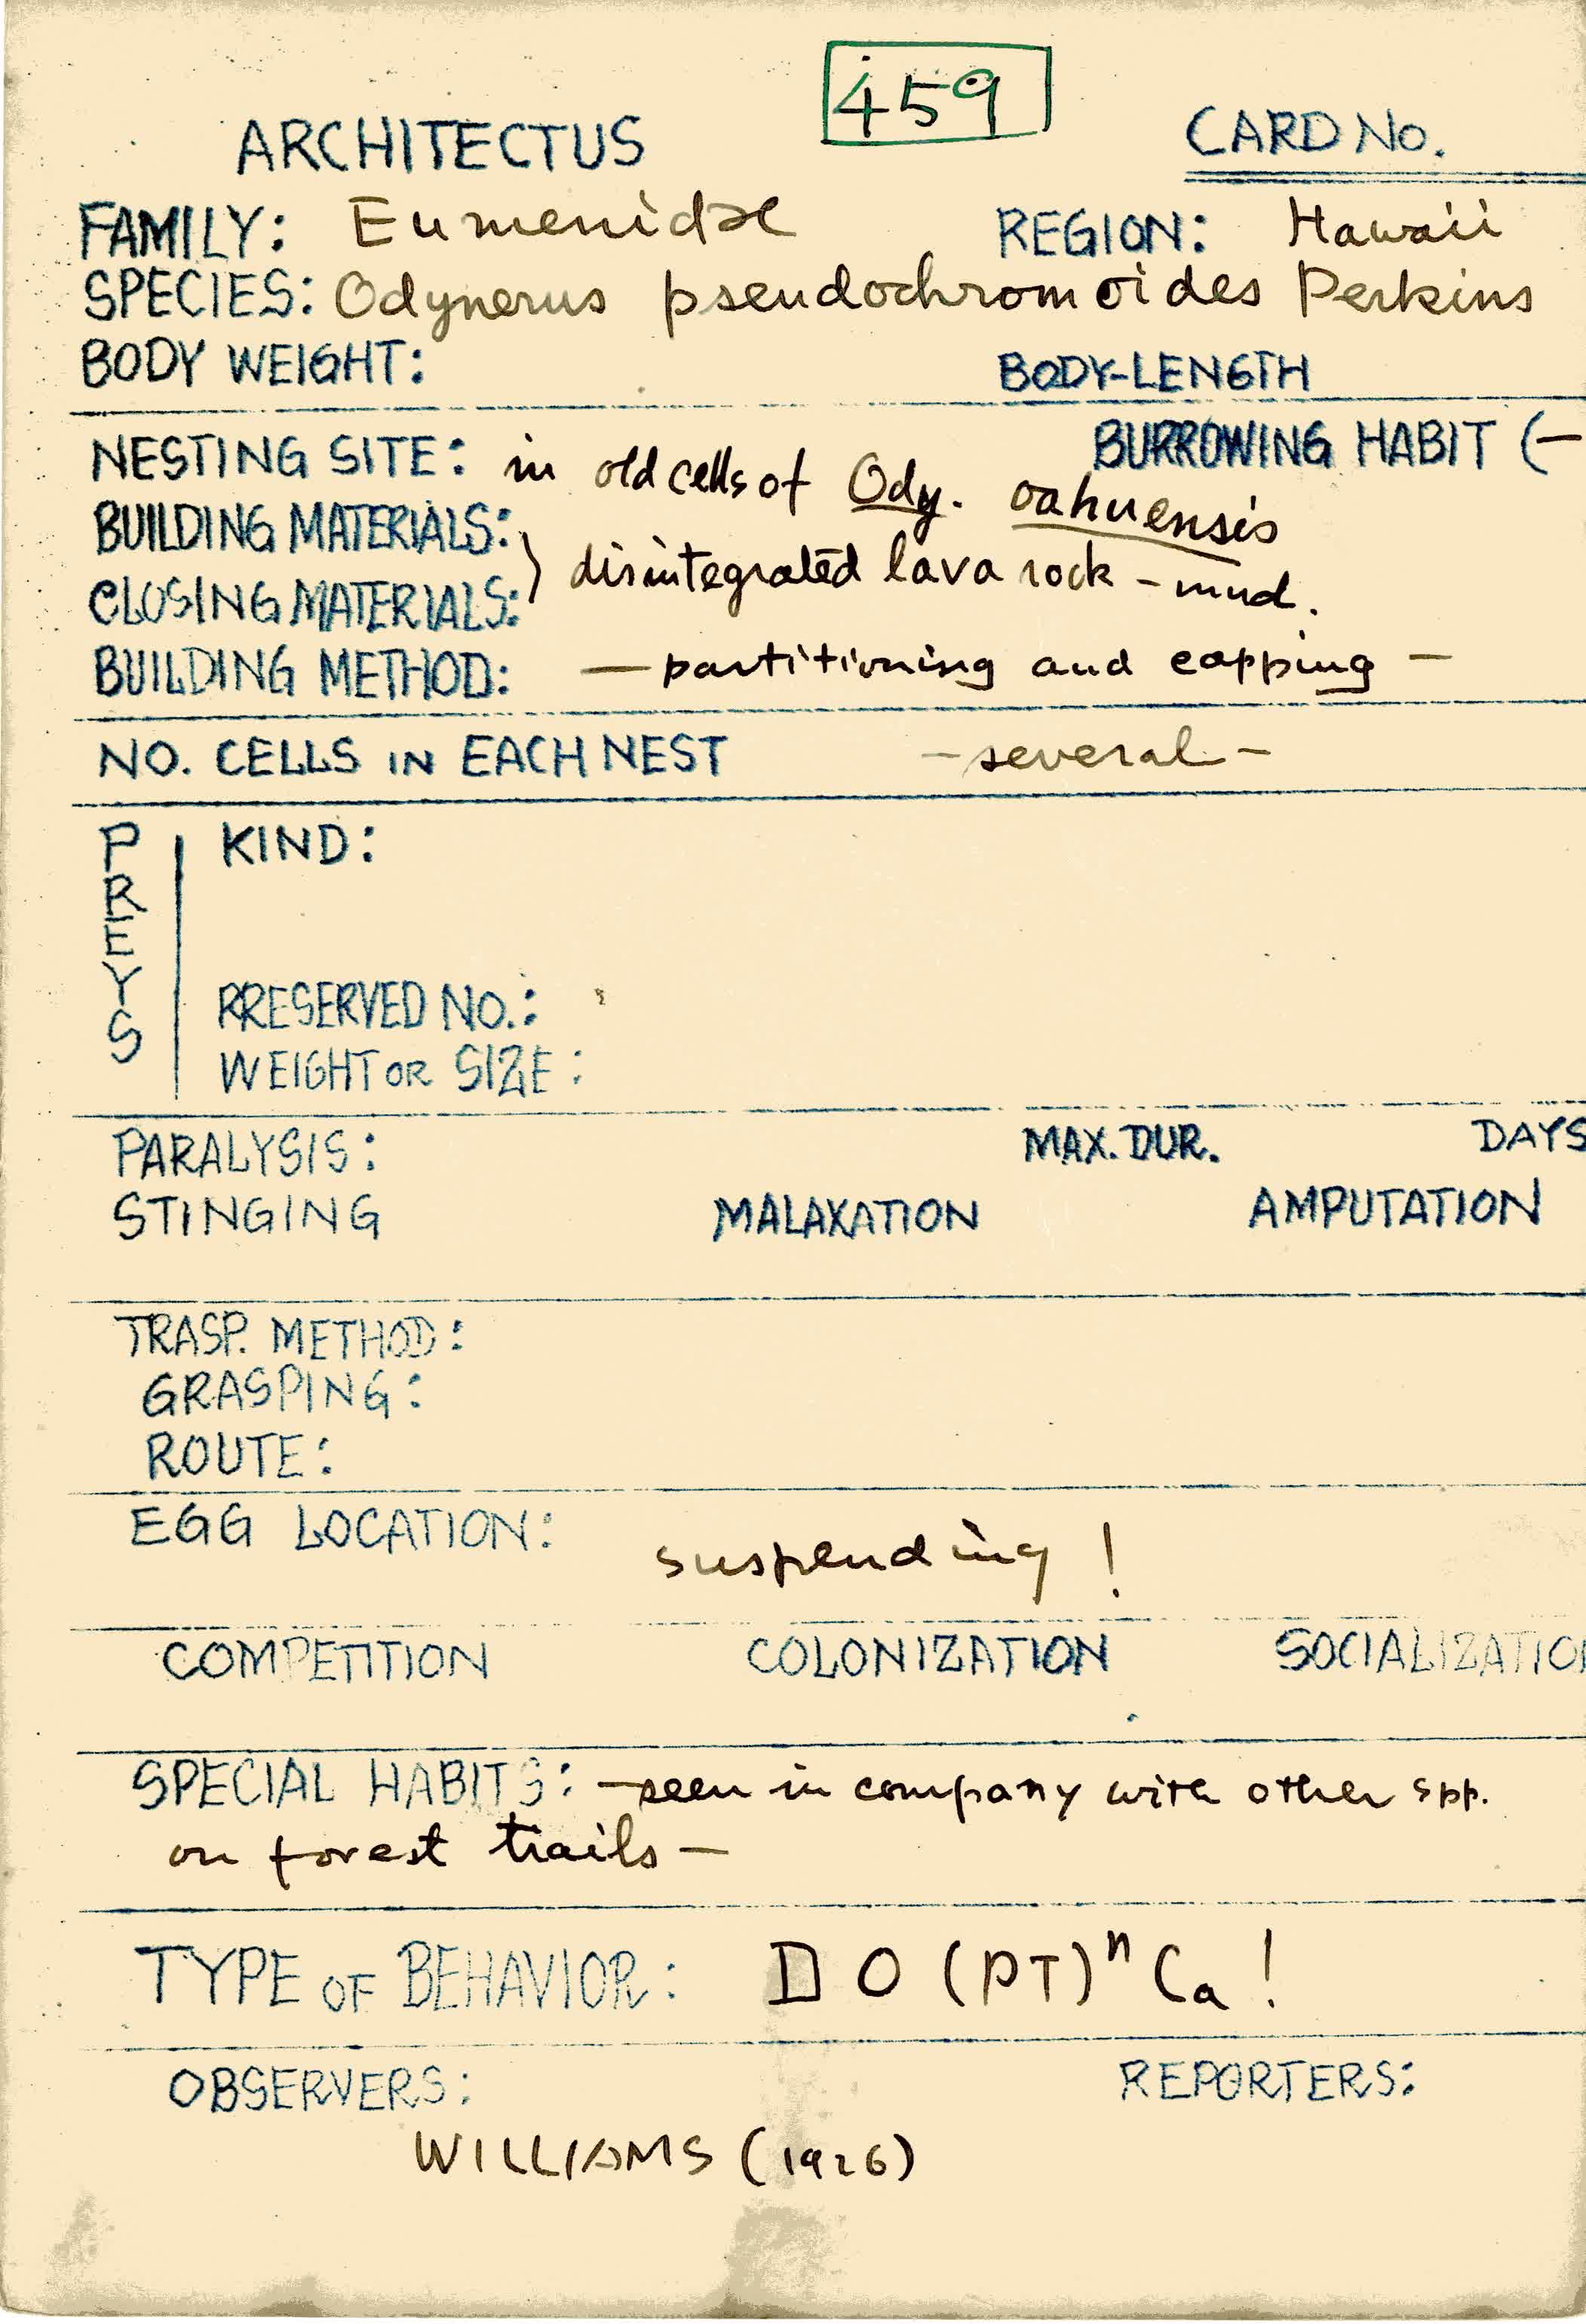 459
ARCHITECTUS CARD No.
FAMILY: Eumenidae REGION: Hawaii
SPECIES: Odynerus pseudochromoides Perkins
BODY WEIGHT: BODY-LENGTH
NESTING SITE: in old cells of Ody. oahuensis BURROWING HABIT (-
BUILDING MATERIALS:
CLOSING MATERIALS: } disintegrated lava rock - mud.
BUILDING METHOD: — partitioning and capping —
NO. CELLS IN EACH NEST - several -
PREYS
KIND:
PRESERVED NO.:
WEIGHT OR SIZE:
PARALYSIS: MAX. DUR. DAYS
STINGING MALAXATION AMPUTATION
TRASP. METHOD:
GRASPING:
ROUTE:
EGG LOCATION: suspending!
COMPETITION COLONIZATION SOCIALIZATION
SPECIAL HABITS: — seen in company with other spp.
on forest trails —
TYPE OF BEHAVIOR: D O (PT)ⁿ Ca!
OBSERVERS: REPORTERS:
WILLIAMS (1926)